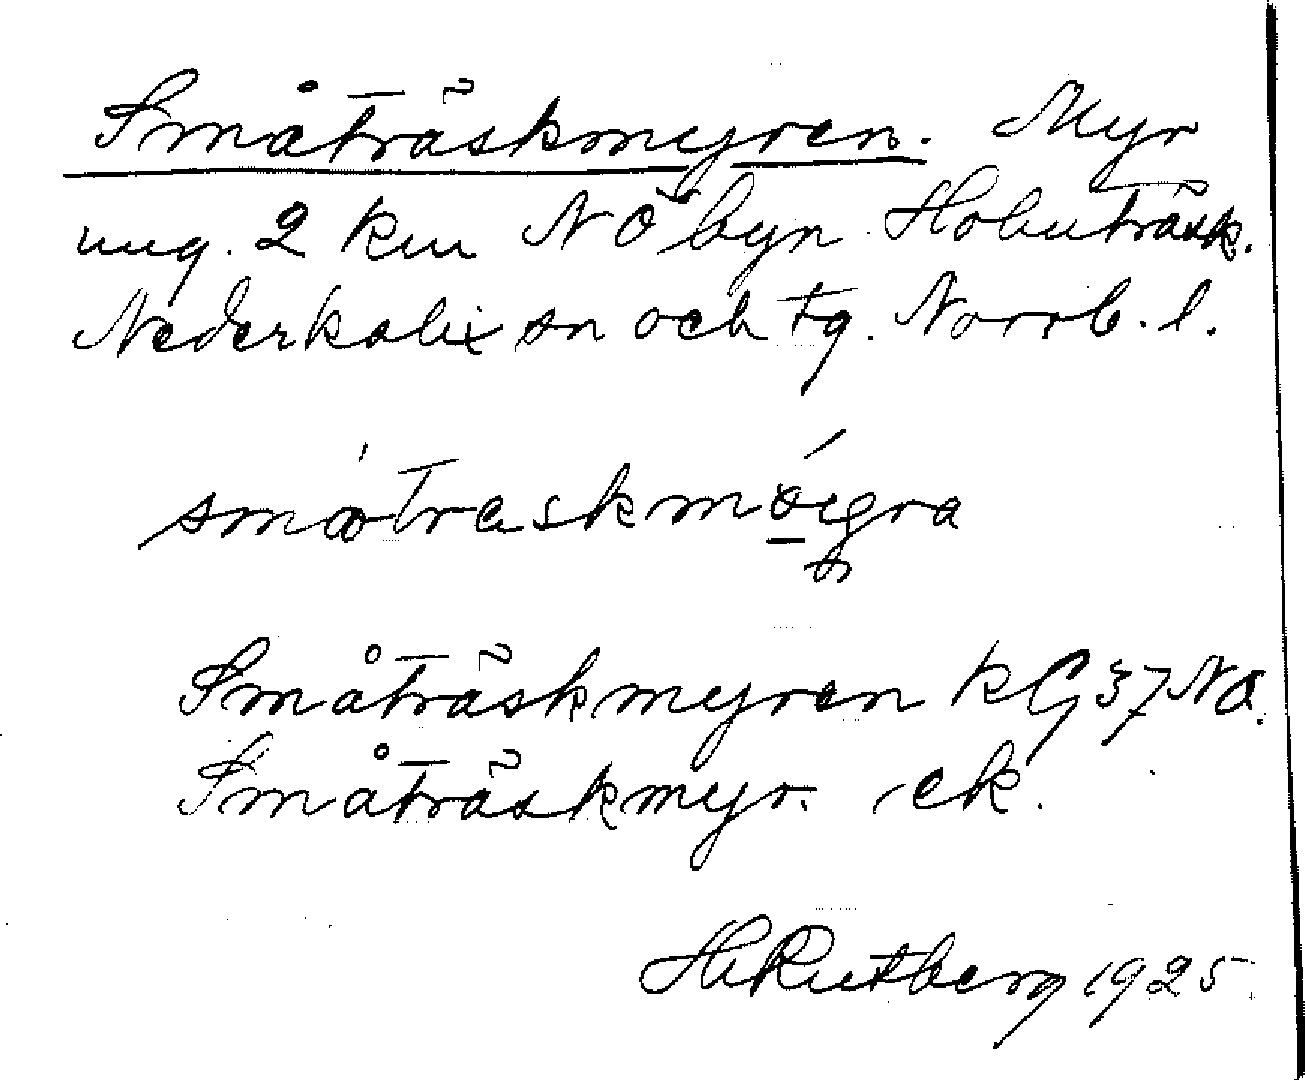 Småträskmyren. Myr
ung. 2 km NÖ byn Hobuträsk.
Nederkalix sn och tg. Norrb. l.
Småträskmyren kG 37 NO.
Småträskmyr. ek.
H Rutberg 1925